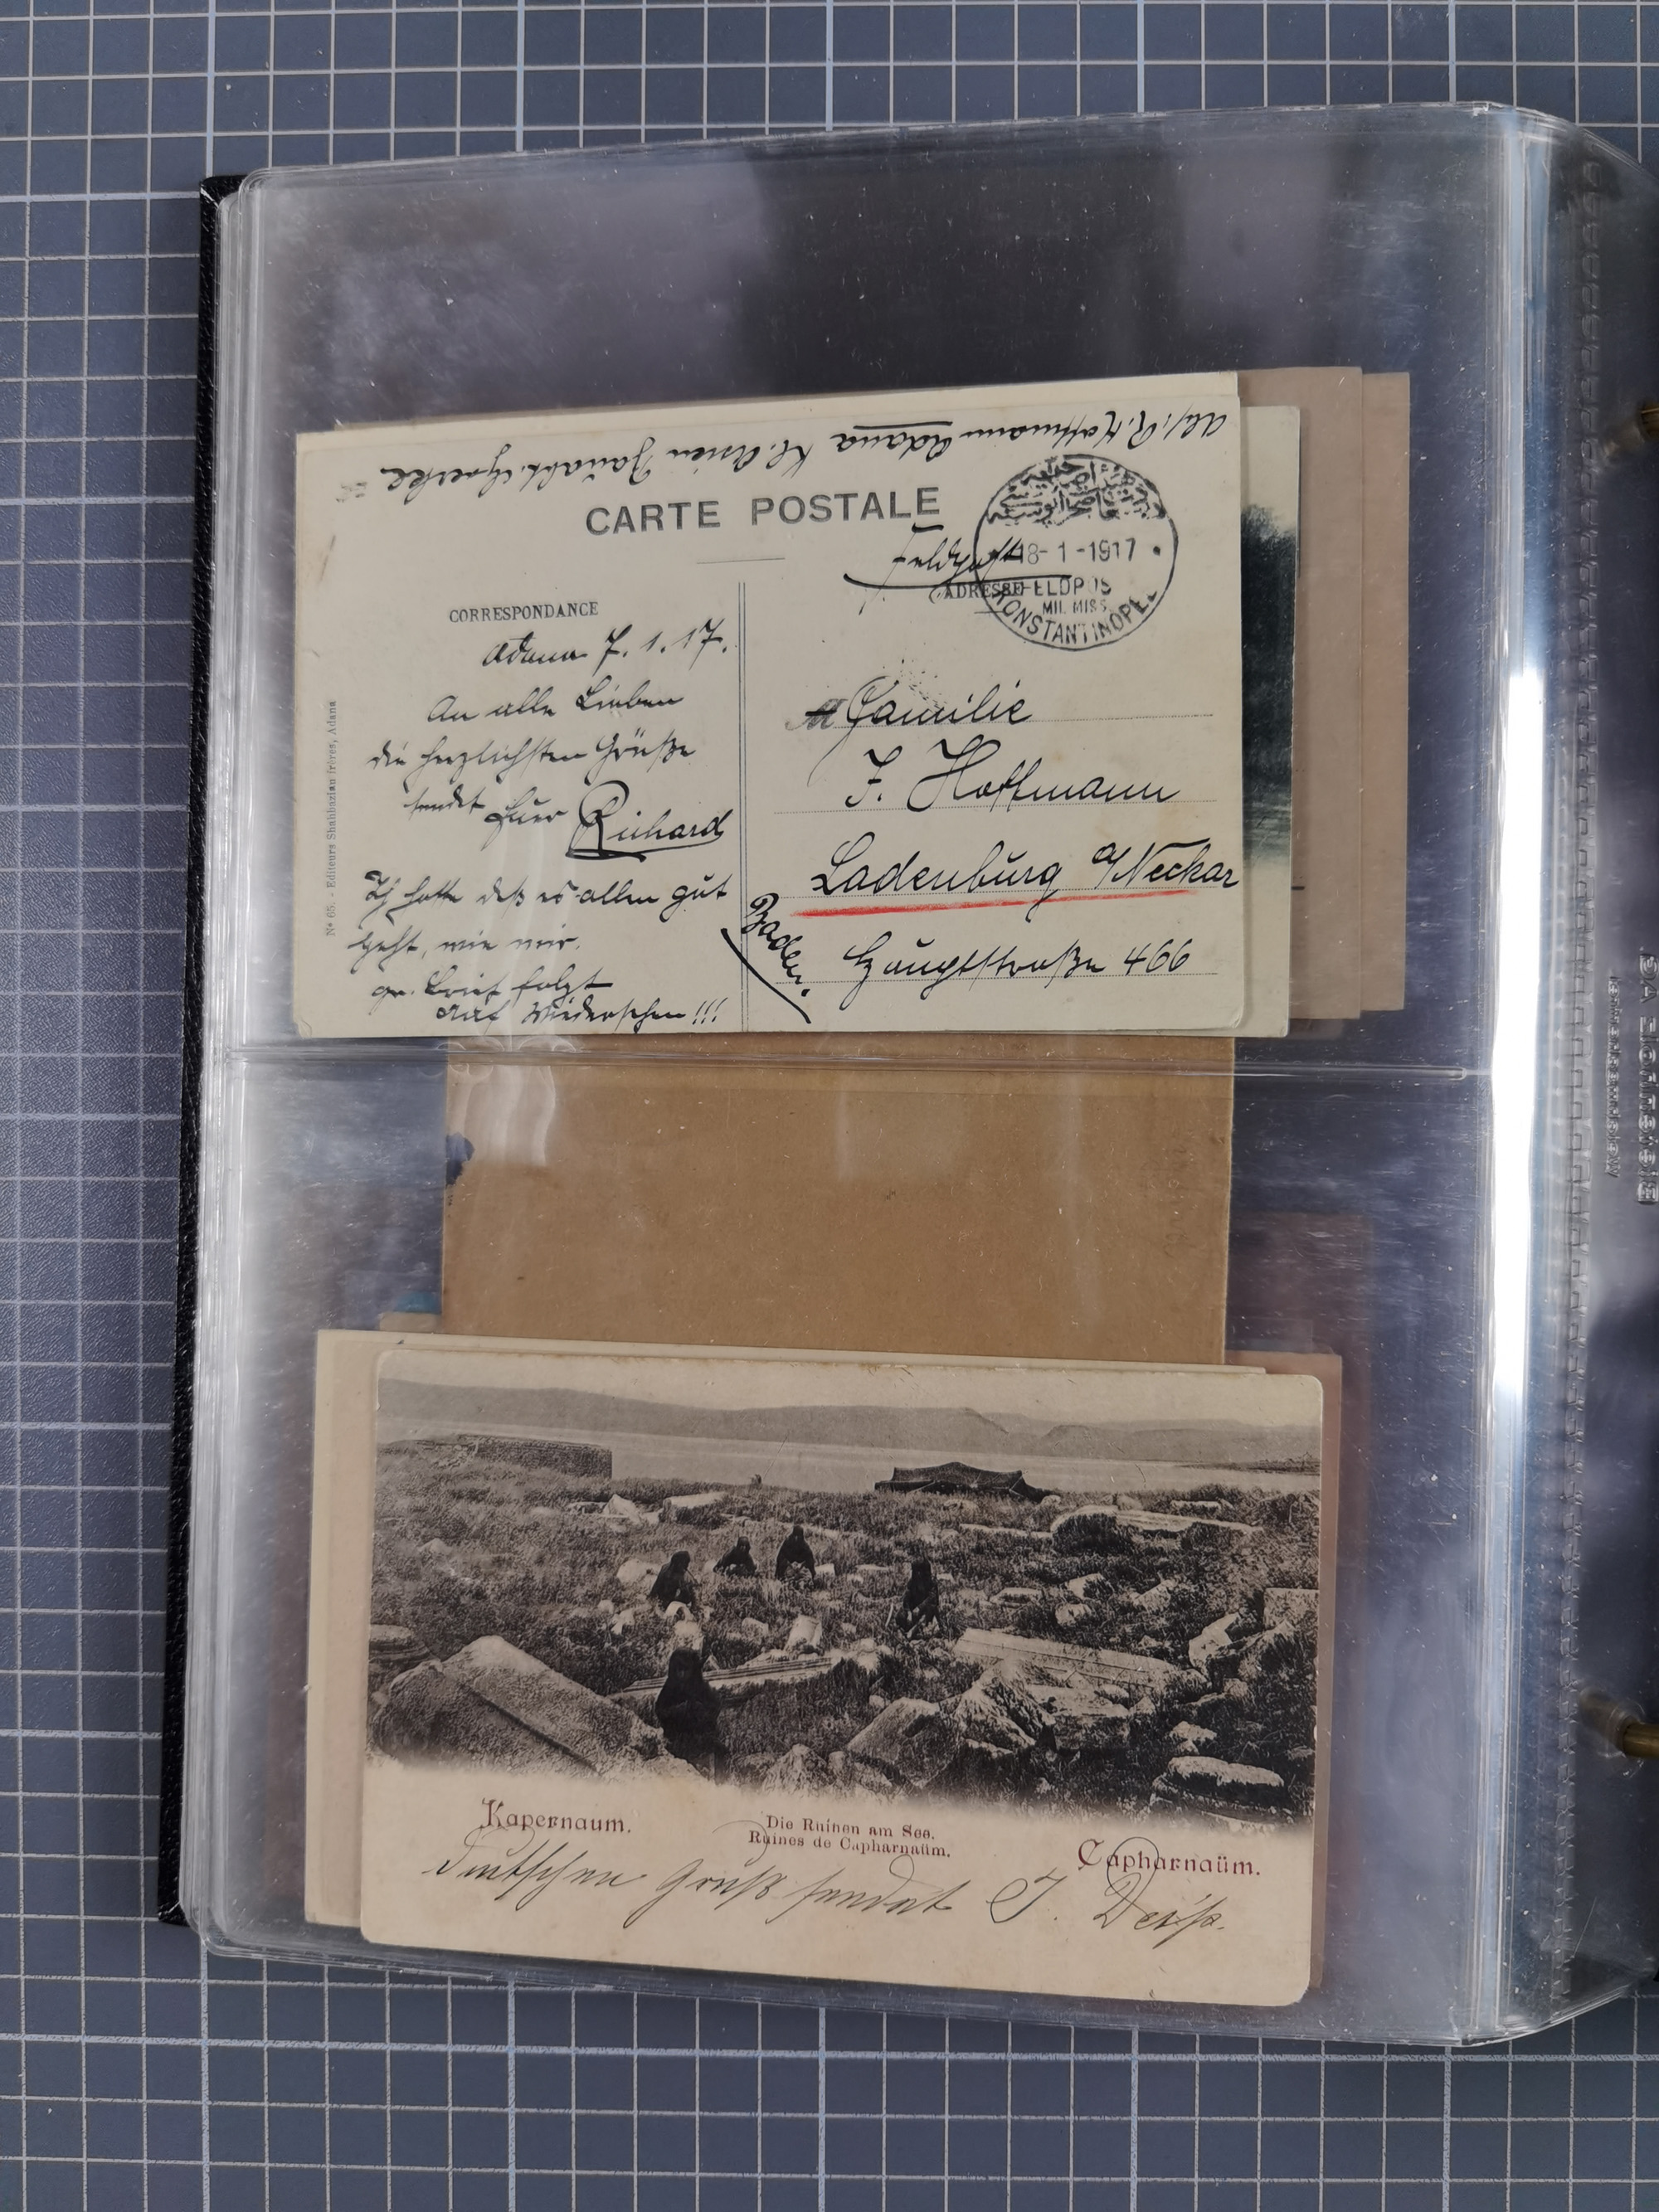 Abs. R. Hoffmann Adana Kl. Asien
CARTE POSTALE
Feldpost
18-1-1917
FELDPOS
MIL. MISS.
KONSTANTINOPEL
CORRESPONDANCE
ADRESSE
Adana 7. 1. 17.
An alle Lieben
die herzlichsten Grüße
sendet Euer Richard
Ich hoffe daß es allen gut
geht, wie mir.
Brief folgt
Auf Wiedersehen!!!
Nº 65. - Editeurs Shahbazian frères, Adana
Familie
J. Hoffmann
Ladenburg a/Neckar
Baden.
Hauptstraße 466
Kapernaum.
Die Ruinen am See.
Ruines de Capharnaüm.
Capharnaüm.
Deutschen Gruß sendet J.